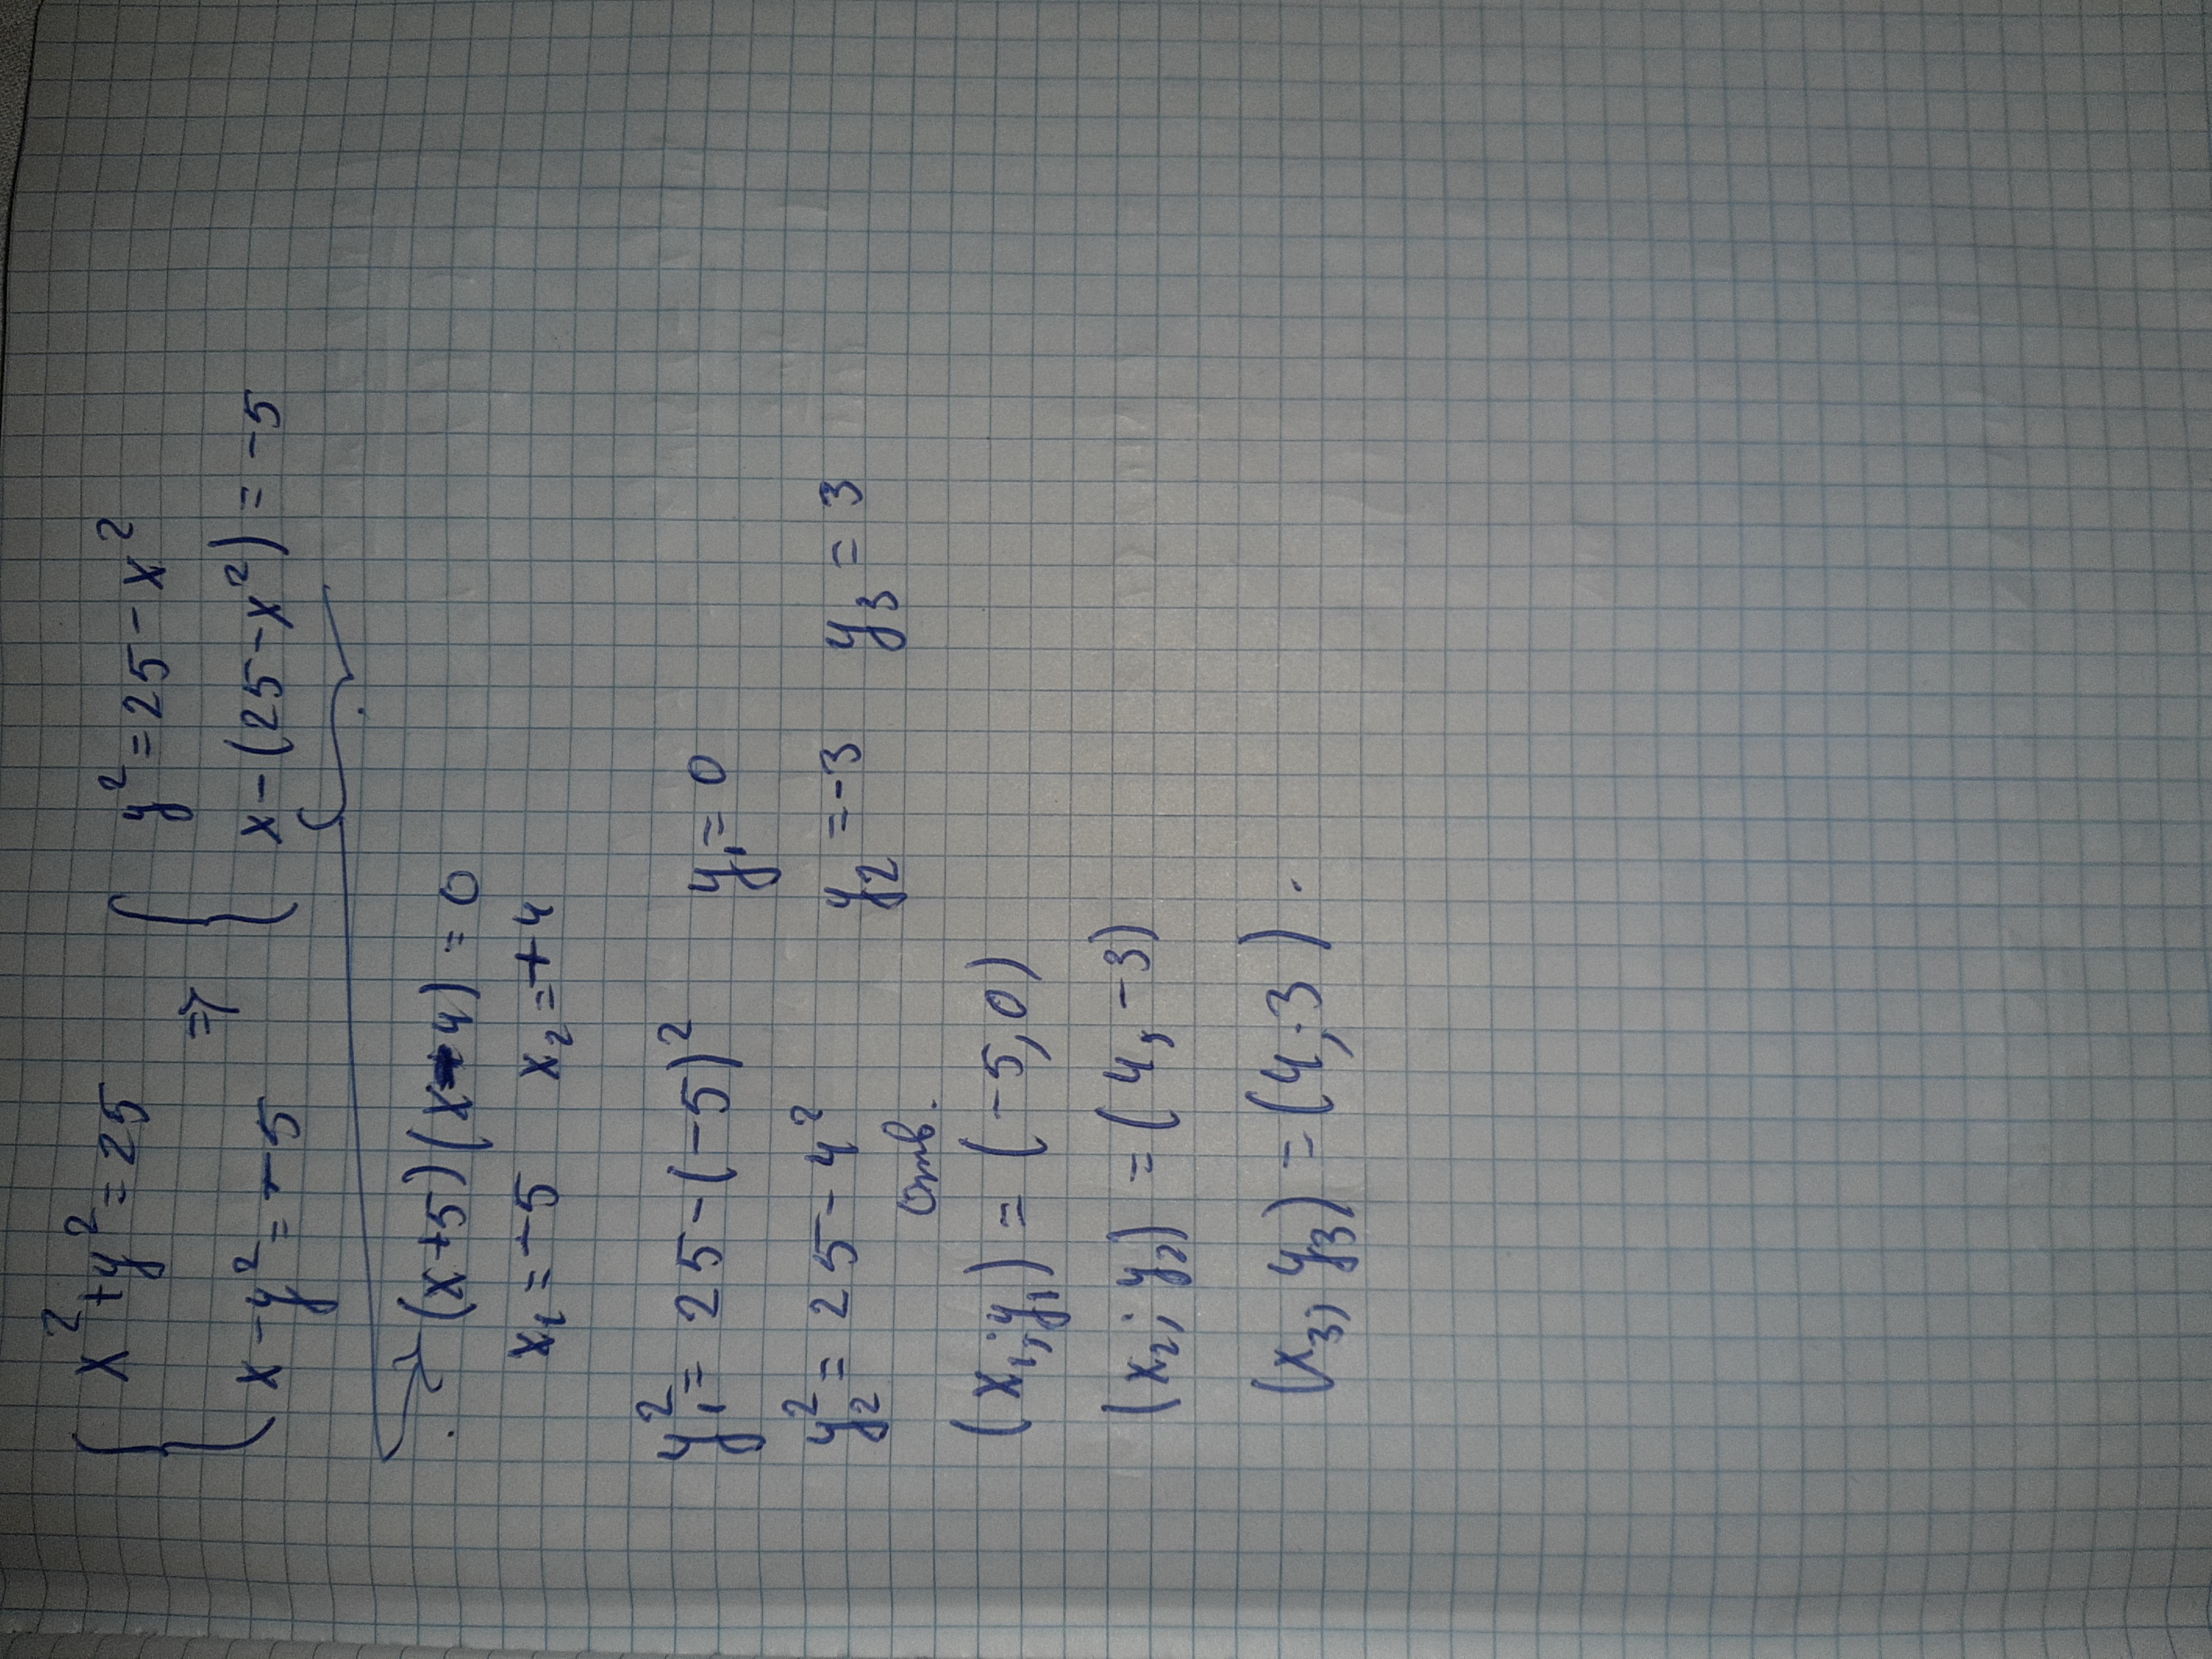 { x² + y² = 25 ⇒ { y² = 25 - x²
x - y² = -5 x - (25 - x²) = -5
(x + 5)(x - 4) = 0
x₁ = -5 x₂ = +4
y₁² = 25 - (-5)² y₁ = 0
y₂² = 25 - 4² y₂ = -3 y₃ = 3
Отв.
(x₁; y₁) = (-5, 0)
(x₂; y₂) = (4, -3)
(x₃, y₃) = (4, 3).